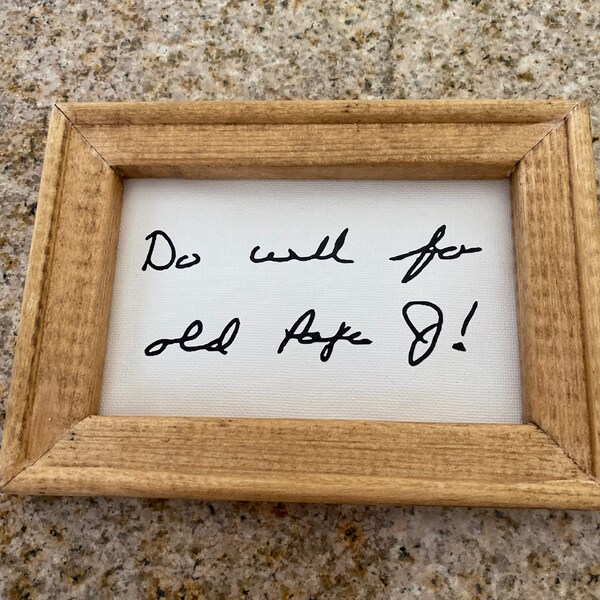 Do well for
old J!